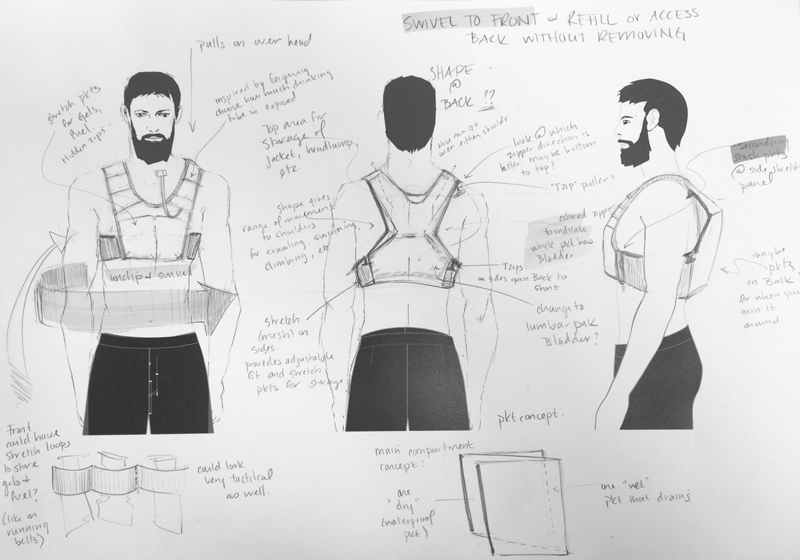 SWIVEL TO FRONT + REFILL or ACCESS
BACK WITHOUT REMOVING
pulls on over head
stretch pkts
for gels,
fuel.
Hidden zips.
inspired by
choose how much drinking
tube is exposed.
Top area for
storage of
jacket, headlamp,
etc.
shape gives
range of movement
to shoulders
for crawling, swimming,
climbing, etc
unclip & swivel
stretch
(mesh) on
sides.
provides adjustable
fit and stretch
pkts for storage
SHAPE
@
BACK ??
over either shoulder
look @ which
zipper direction is
better. maybe bottom
to top?
"Zap" pullers
colored zipper
to indicate
which pkt has
Bladder
Zips
on sides open Back to
Front
change to
lumbar pak
Bladder?
secondary
stash pkts
@ side stretch
panel
maybe
pkts
on Back
for when you
turn it
around
Front
could have
stretch loops
to store
gels +
fuel?
(like on
running
belts)
could look
very tactical
as well.
pkt concept.
main compartment
concept:
one
"dry"
(waterproof
pkt)
one "wet"
pkt that drains